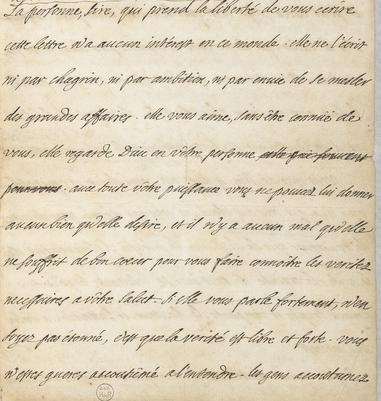 La personne, Sire, qui prend la liberté de vous écrire
cette lettre n'a aucun interest en ce monde. elle ne l'écrit
ni par chagrin, ni par ambition, ni par envie de se mesler
des grandes affaires. elle vous aime, sans être connuë de
vous, elle regarde Dieu en vôtre personne
avec toute vôtre puissance vous ne pouvez lui donner
aucun bien qu'elle desire, et il n'y a aucun mal qu'elle
ne souffrit de bon cœur pour vous faire connoître les veritez
necessaires a vôtre salut. Si elle vous parle fortement, n'en
soyez pas étonné, c'est que la verité est libre et forte. vous
n'estes gueres accoutumé a l'entendre. les gens accoutumez